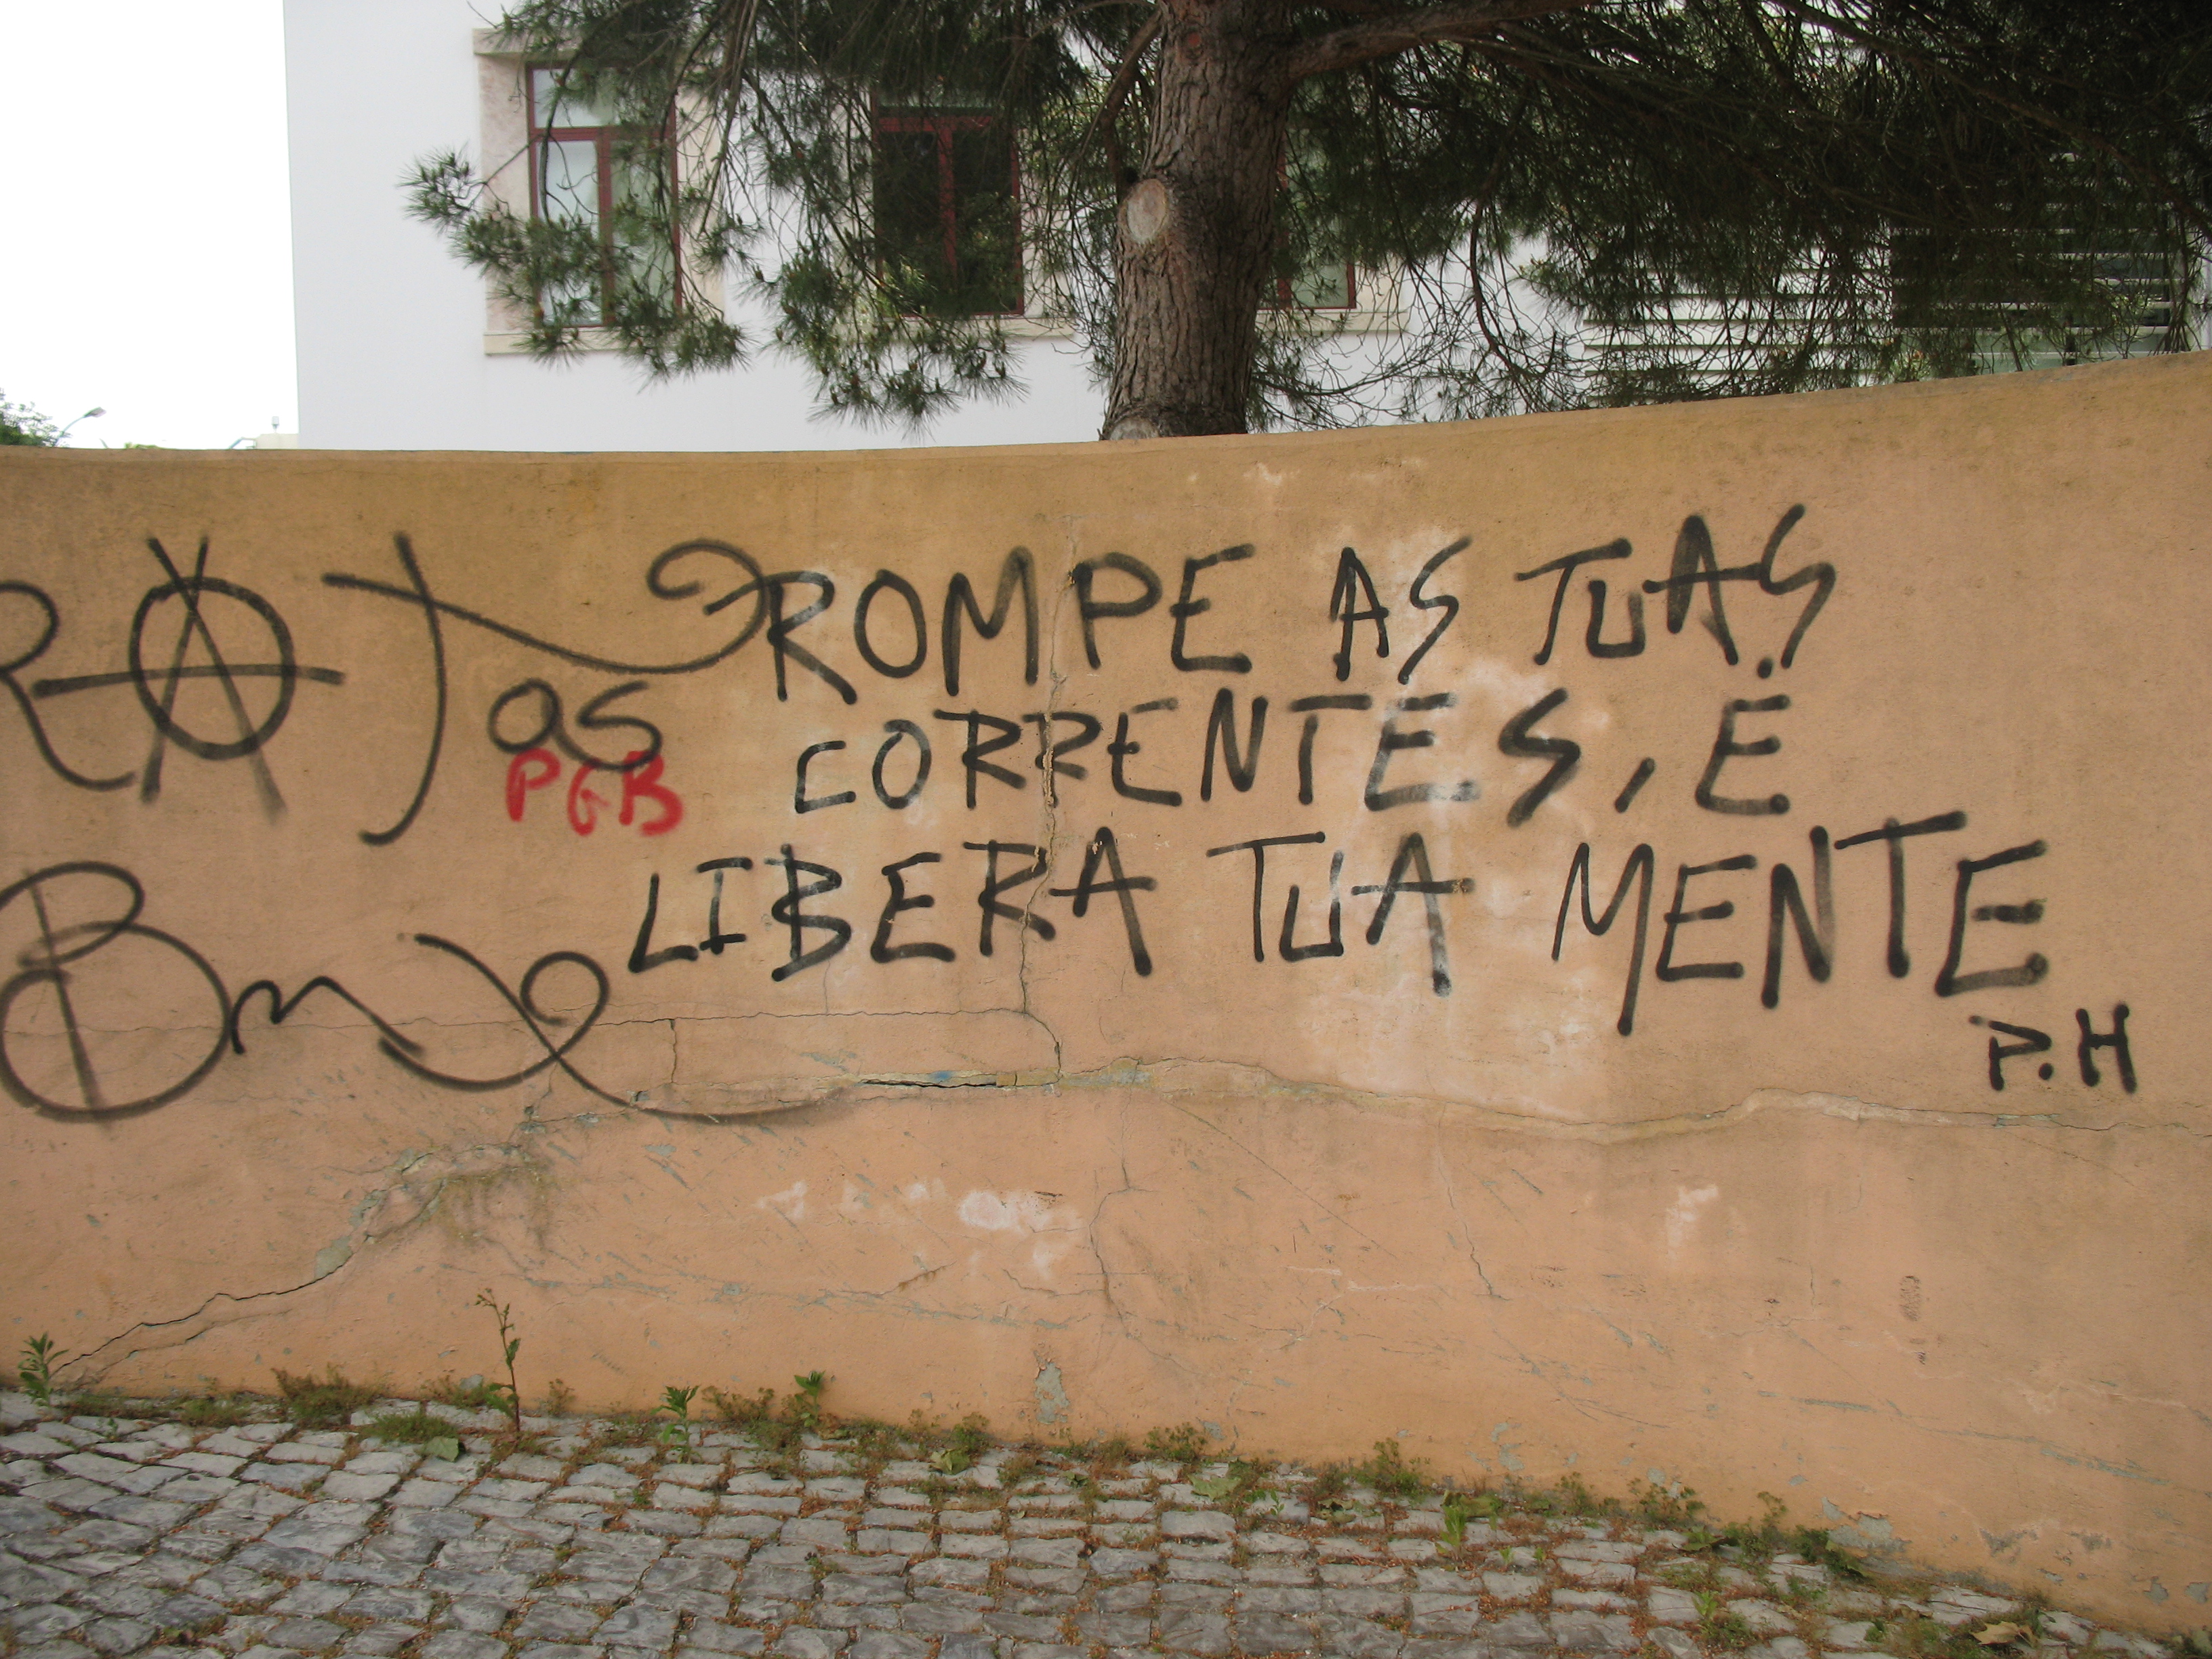 RATas
PGB
ROMPE AS TUAS
CORRENTES, E
LIBERA TUA MENTE
P.H